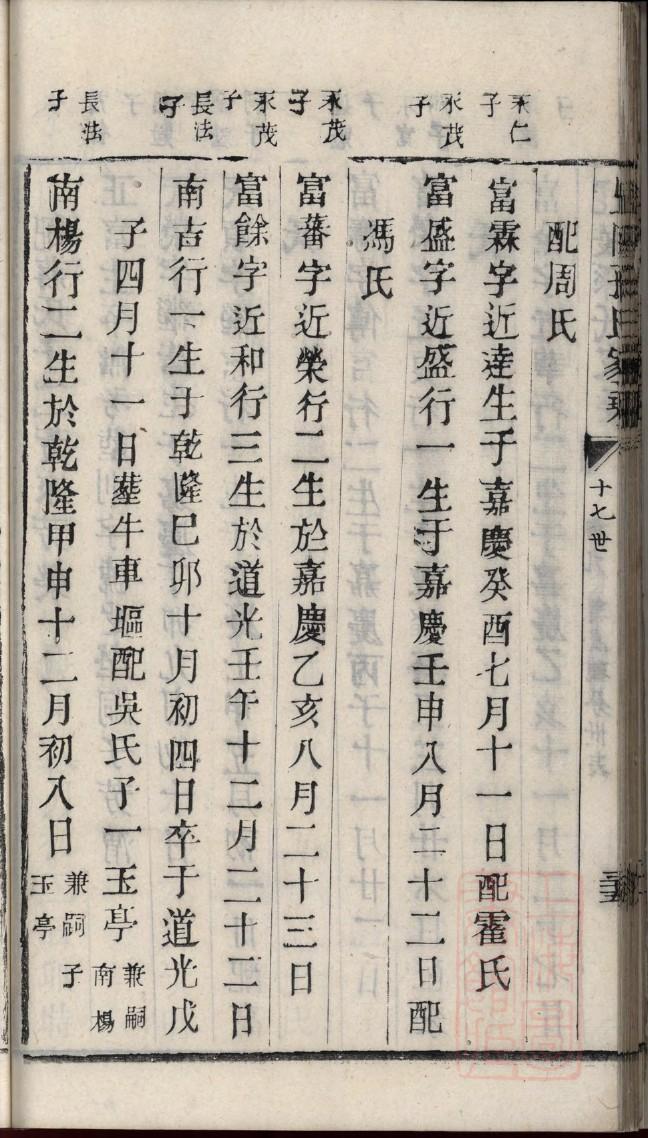 十七世
配周氏
永仁子
富霖字近達生于嘉慶癸酉七月十一日配霍氏
永茂子
富盛字近盛行一生于嘉慶壬申八月二十二日配
馮氏
永茂子
富蕃字近榮行二生於嘉慶乙亥八月二十三日
永茂子
富餘字近和行三生於道光壬午十二月二十二日
長法子
南吉行一生于乾隆巳卯十月初四日卒于道光戊
子四月十一日塟牛車塸配吳氏子一玉亭兼嗣南楊
長法子
南楊行二生於乾隆甲申十二月初八日兼嗣子玉亭